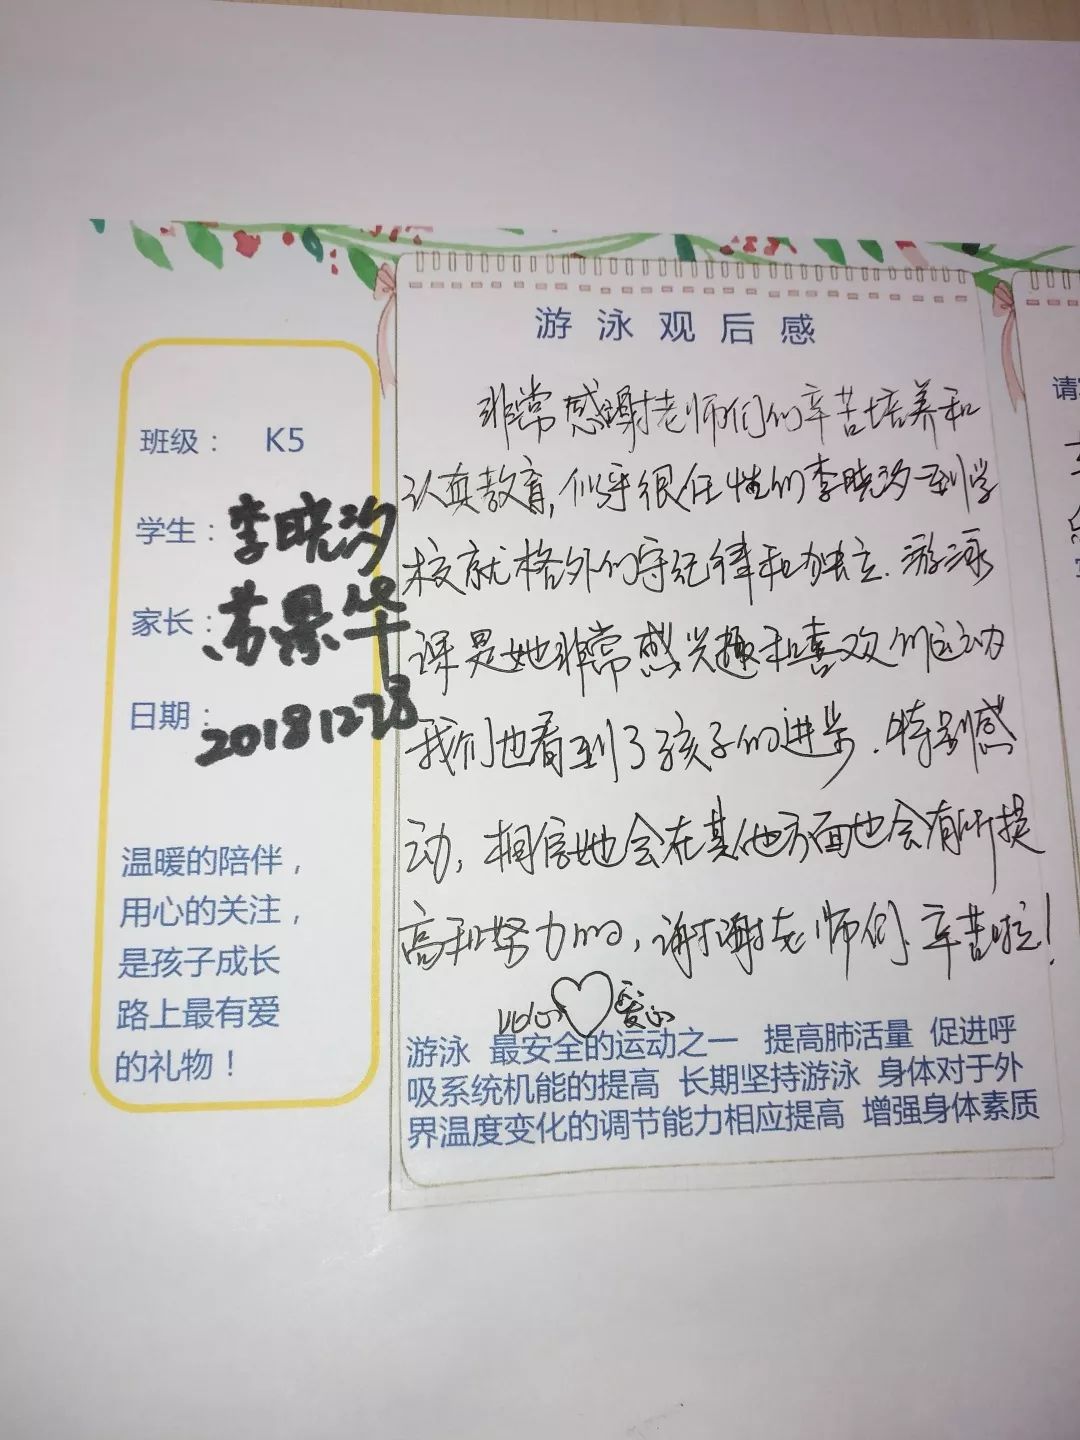 班级： K5
学生：李晓汐
家长：
日期：20181228
温暖的陪伴，
用心的关注，
是孩子成长
路上最有爱
的礼物！
游泳观后感
非常感谢老师们的辛苦培养和
认真教育，似乎很任性的李晓汐一到学
校就格外的守纪律和独立．游泳
课是她非常感兴趣和喜欢的运动
我们也看到了孩子的进步．特别感
动，相信她会在其他方面也会有所提
高和努力的，谢谢老师们．辛苦啦！
爱心
游泳 最安全的运动之一 提高肺活量 促进呼
吸系统机能的提高 长期坚持游泳 身体对于外
界温度变化的调节能力相应提高 增强身体素质
请